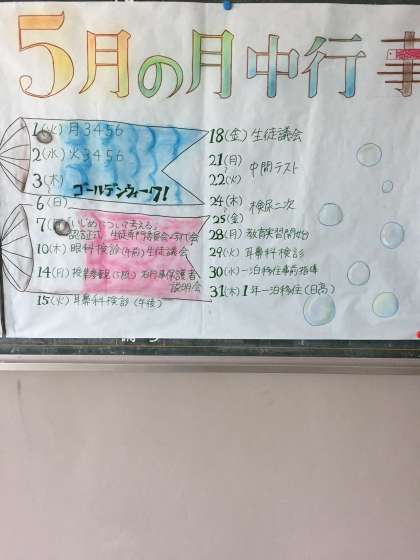 5月の月中行事
1(火) 月3456
2(水) 火3456
3(木)
ゴールデンウィーク!
6(日)
7(月)「いじめ」について考える。
認証式 生徒専門委員会
10(木) 眼科検診(午前) 生徒議会
14(月) 授業参観
説明会
15(火) 耳鼻科検診(午後)
18(金) 生徒議会
21(月)
中間テスト
22(火)
24(木)
検尿二次
25(金)
28(月) 教育実習開始
29(火) 耳鼻科検診
30(水) 一泊移住事前指導
31(木) 1年一泊移住(日高)